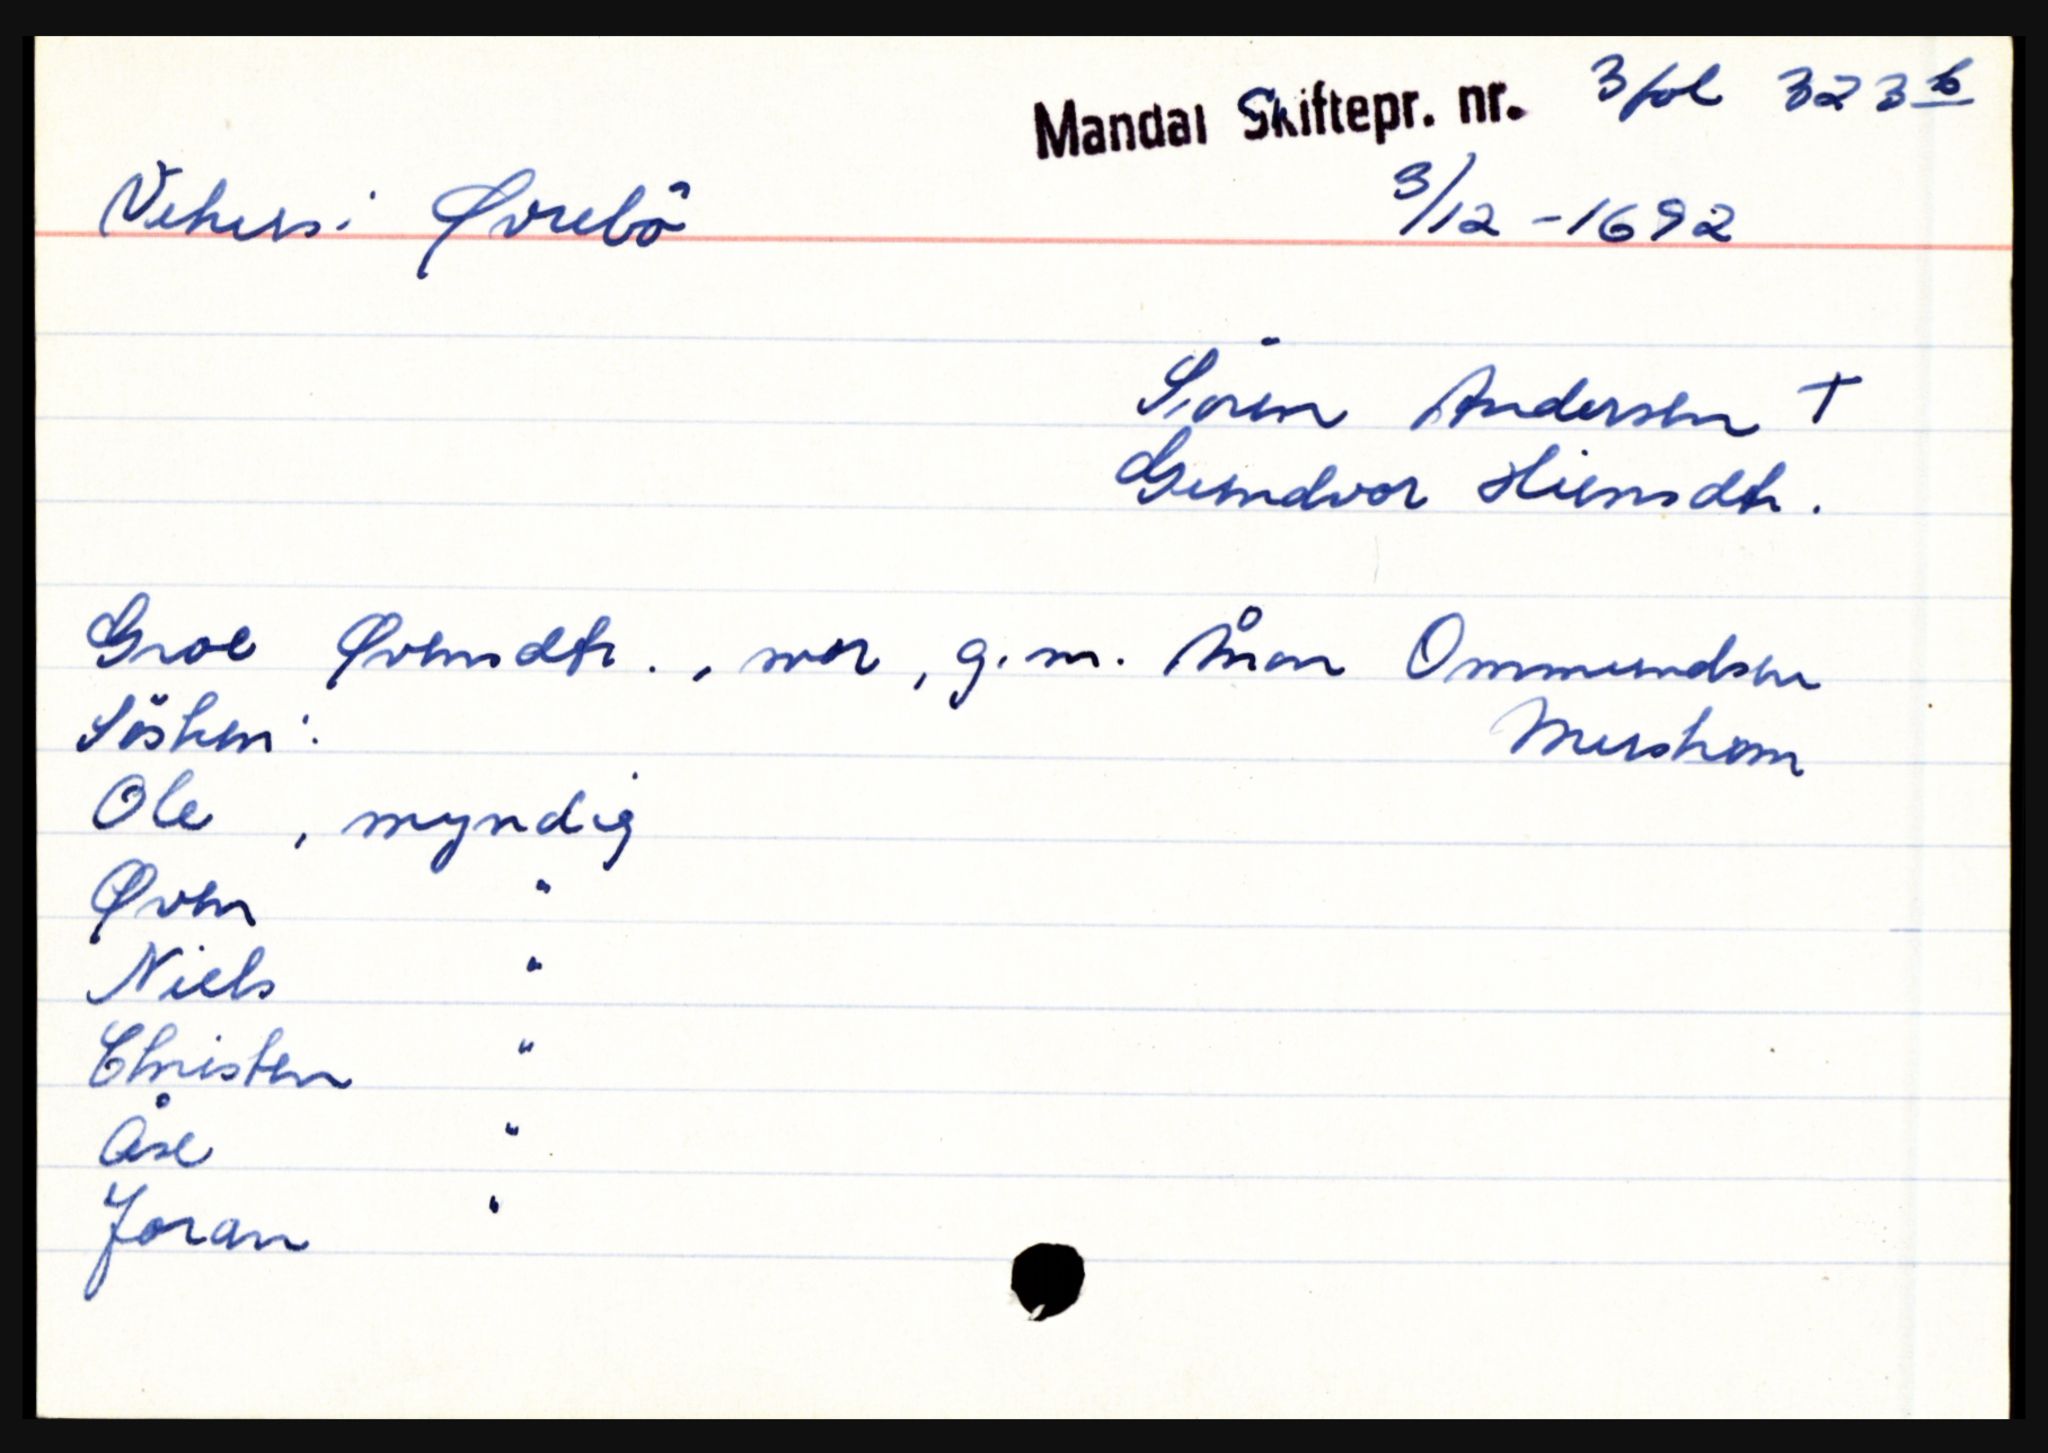 Mandal Skiftepr. nr. 3 fol 323 b
Vehus i Øvrebö 3/12 - 1692
Sören Andersen †
Gundvor Hiensdtr.
Groe Øvensdtr., mor, g.m. Åmon Ommundsen
Sösken: Mushom
Ole, myndig
Øven "
Niels "
Christen "
Åse "
Joran "